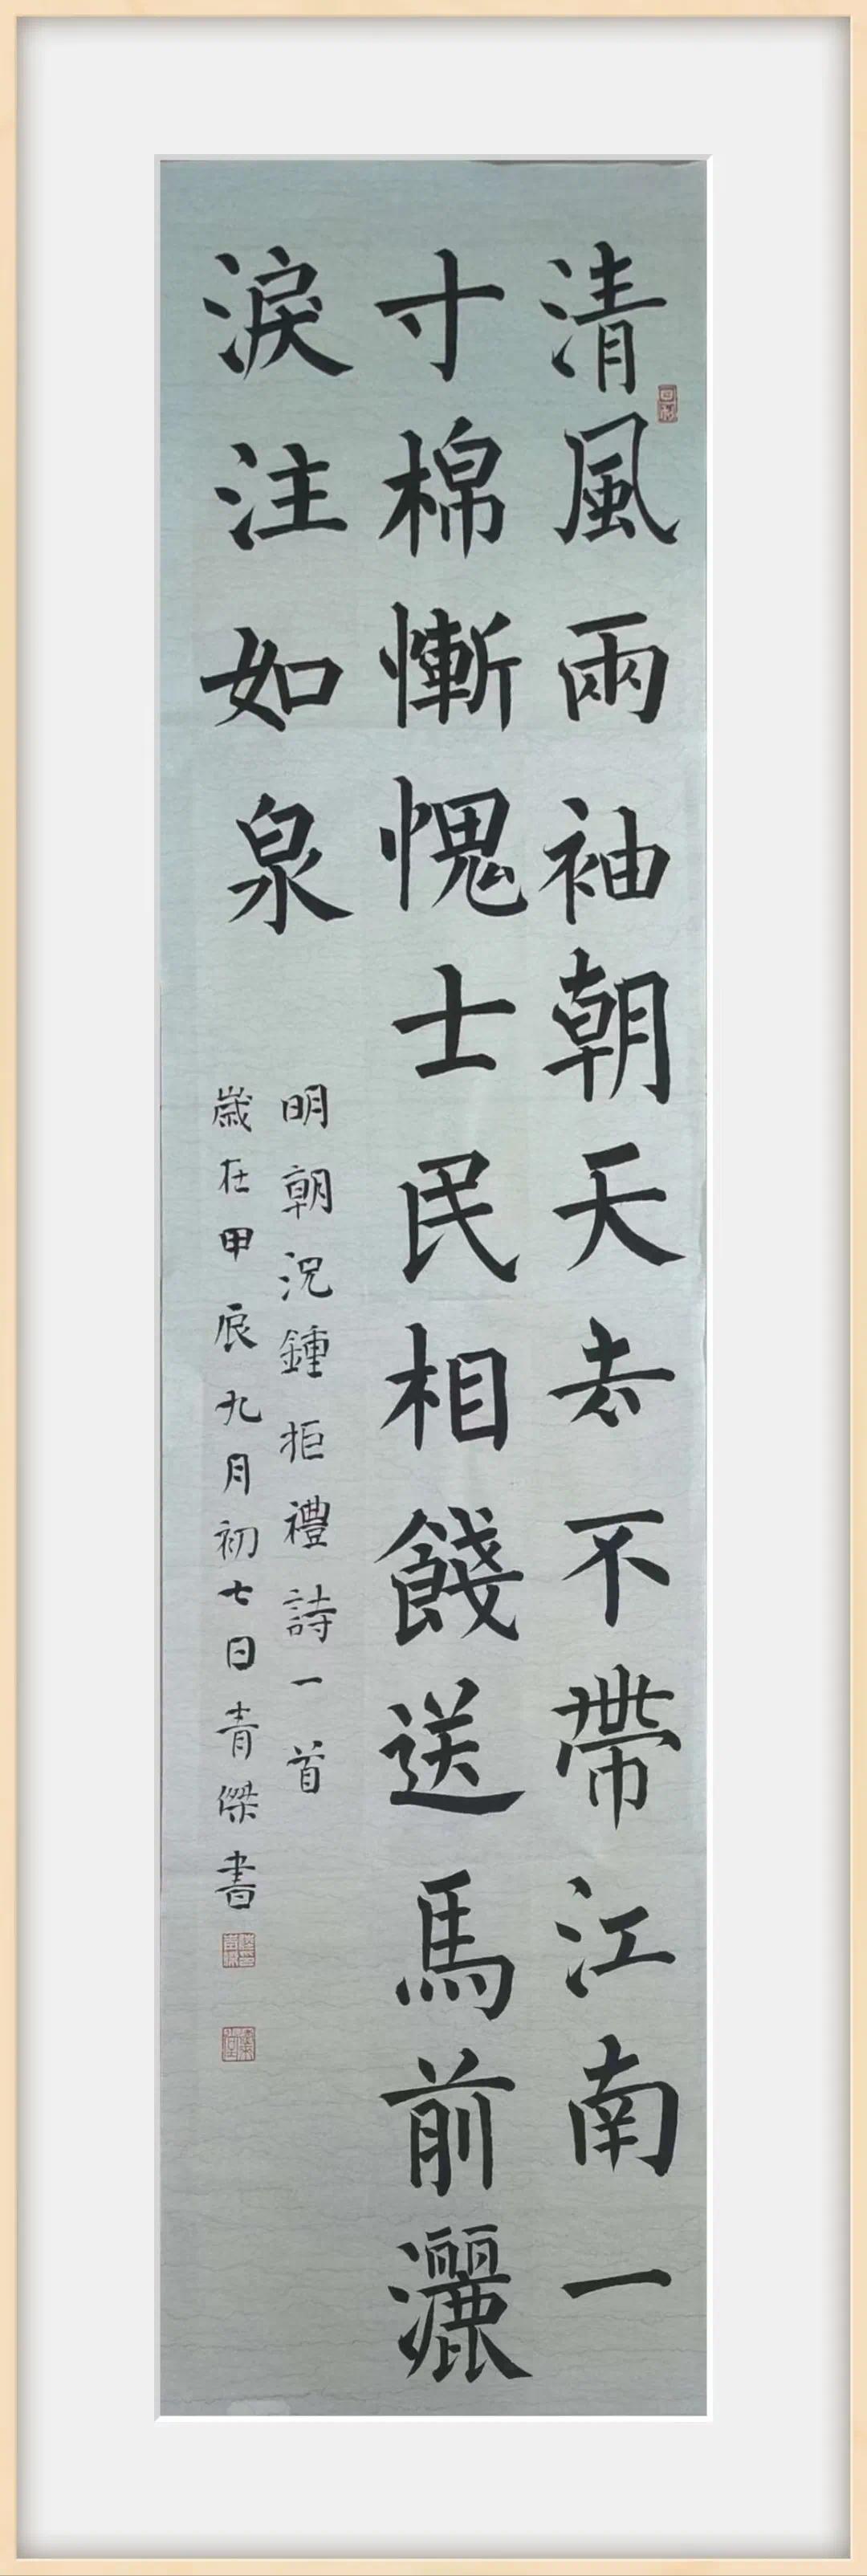 清風兩袖朝天去不帶江南一
寸棉慚愧士民相餞送馬前灑
淚注如泉
明朝況鍾拒禮詩一首
歲在甲辰九月初七日青傑書